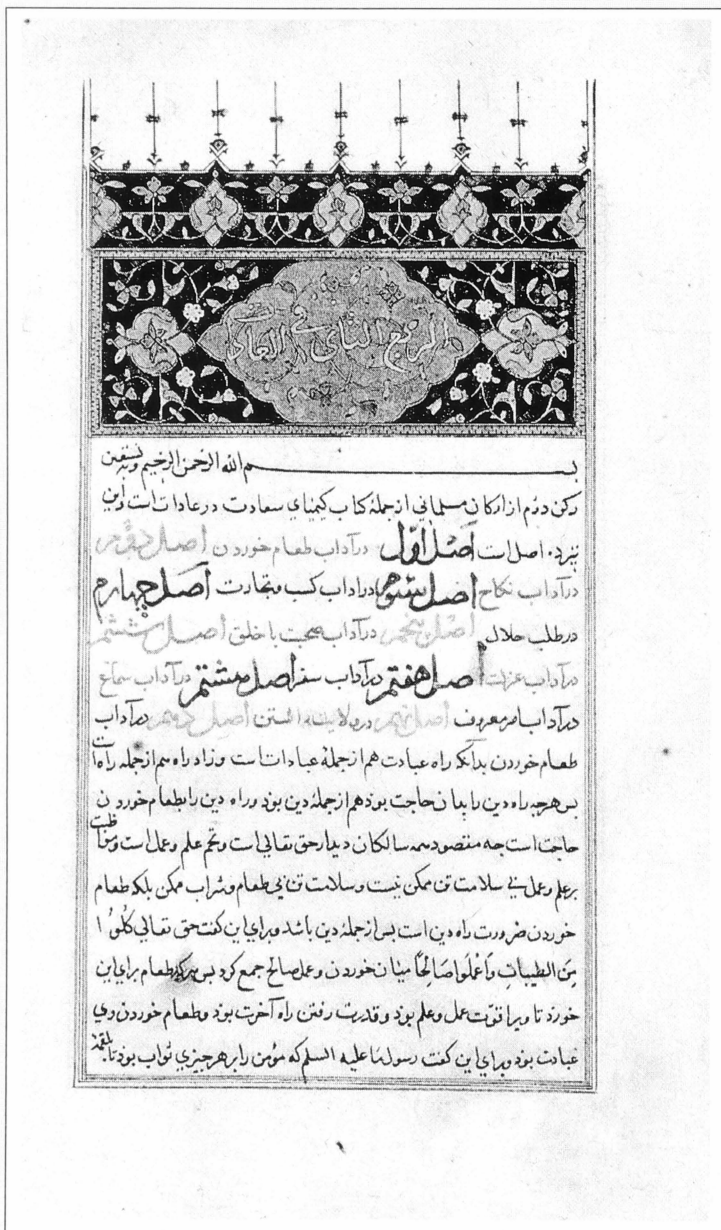 الربع الثانی فی العادات
بسم الله الرحمن الرحیم وبه نستعین
رکن دوم از ارکان مسلمانی از جملهٔ کتاب کیمیای سعادت در عادات است واین
اصل است اصل اوّل درآداب طعام خوردن اصل دوم
درآداب نکاح اصل سوم درآداب کسب وتجارت اصل چهارم
درطلب حلال اصل پنجم درآداب صحبت با خلق اصل ششم
درآداب عزلت اصل هفتم درآداب سفر اصل هشتم درآداب سماع
درآداب امر معروف اصل نهم در ولایت داشتن اصل دهم درآداب
طعام خوردن بدآنکه راه عبادت هم ازجملهٔ عبادات است وزاد راه هم ازجمله راه است
بس هرچه راه دین را بدان حاجت بوذ هم ازجملهٔ دین بوذ وراه دین را بطعام خوردن
حاجت است چه مقصود همه سالکان دیدار حق تعالی است وتخم علم وعمل است ومواظبت
برعلم وعمل بی سلامت تن ممکن نیست وسلامت تن بی طعام وشراب ممکن بلکه طعام
خوردن ضرورت راه دین است بس ازجملهٔ دین باشد وبرای این کفت حق تعالی کُلُوُا
مِنَ الطیباتِ وَاعْمَلُوا صَالِحًا میان خوردن وعمل صالح جمع کرد بس هرکه طعام برای این
خورد تا ویرا قوّت عمل وعلم بوذ وقدرت رفتن راه آخرت بوذ وطعام خوردن وی
عبادت بوذ وبرای این کفت رسول ما علیه السلم که مؤمن را بر هر چیزی ثواب بوذ تا بلقمهٔ